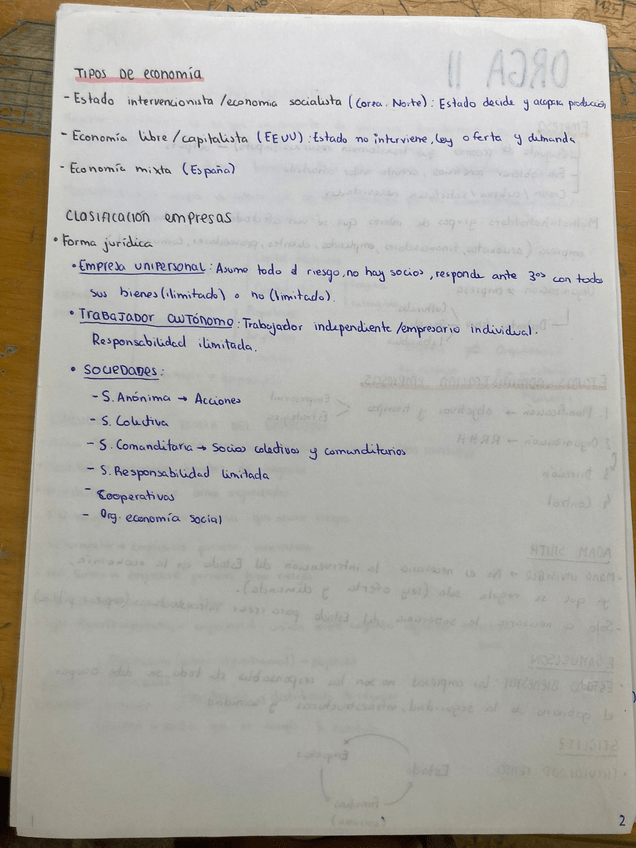 TIPOS DE economía
- Estado intervencionista /economia socialista (Corea Norte): Estado decide y acapara producción
- Economía libre/capitalista (EEUU): Estado no interviene, ley oferta y demanda
- Economía mixta (España)
Clasificación empresas
• Forma jurídica
• Empresa unipersonal: Asume todo el riesgo, no hay socios, responde ante 3os con todos
sus bienes (ilimitado) o no (limitado).
• Trabajador autónomo: Trabajador independiente /empresario individual.
Responsabilidad ilimitada.
• Sociedades:
- S. Anónima → Acciones
- S. Colectiva
- S. Comanditaria → Socios colectivos y comanditarios
- S. Responsabilidad limitada
- Cooperativas
- Org. economía social
2